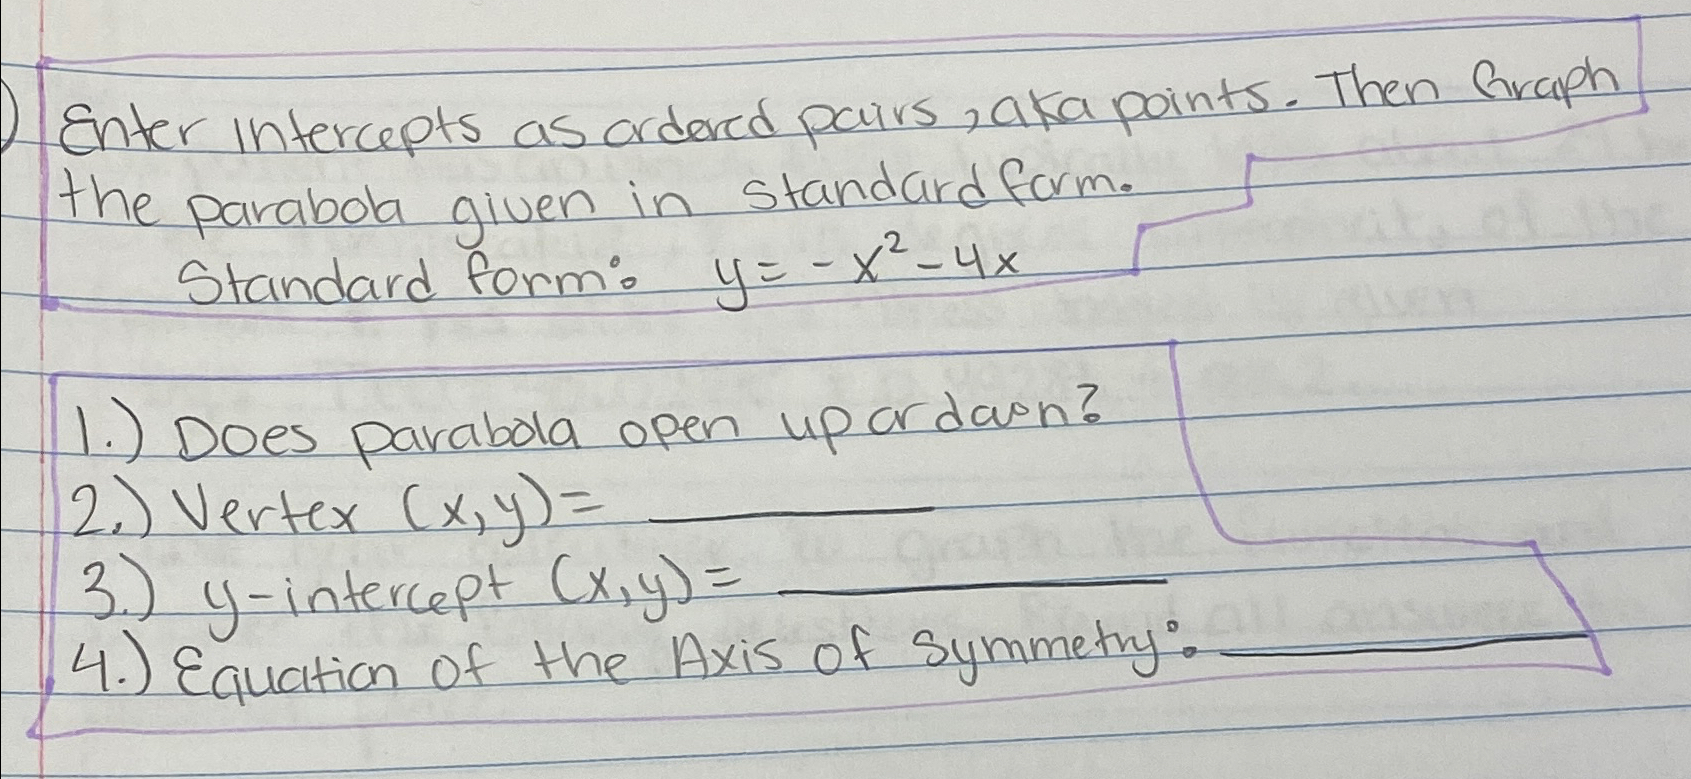 Enter Intercepts as ordered pairs, aka points. Then Graph
the parabola given in standard form.
Standard form: y = -x² - 4x
1.) Does parabola open up or down?
2.) Vertex (x,y) = ________
3.) y-intercept (x,y) = ________
4.) Equation of the Axis of Symmetry: ________